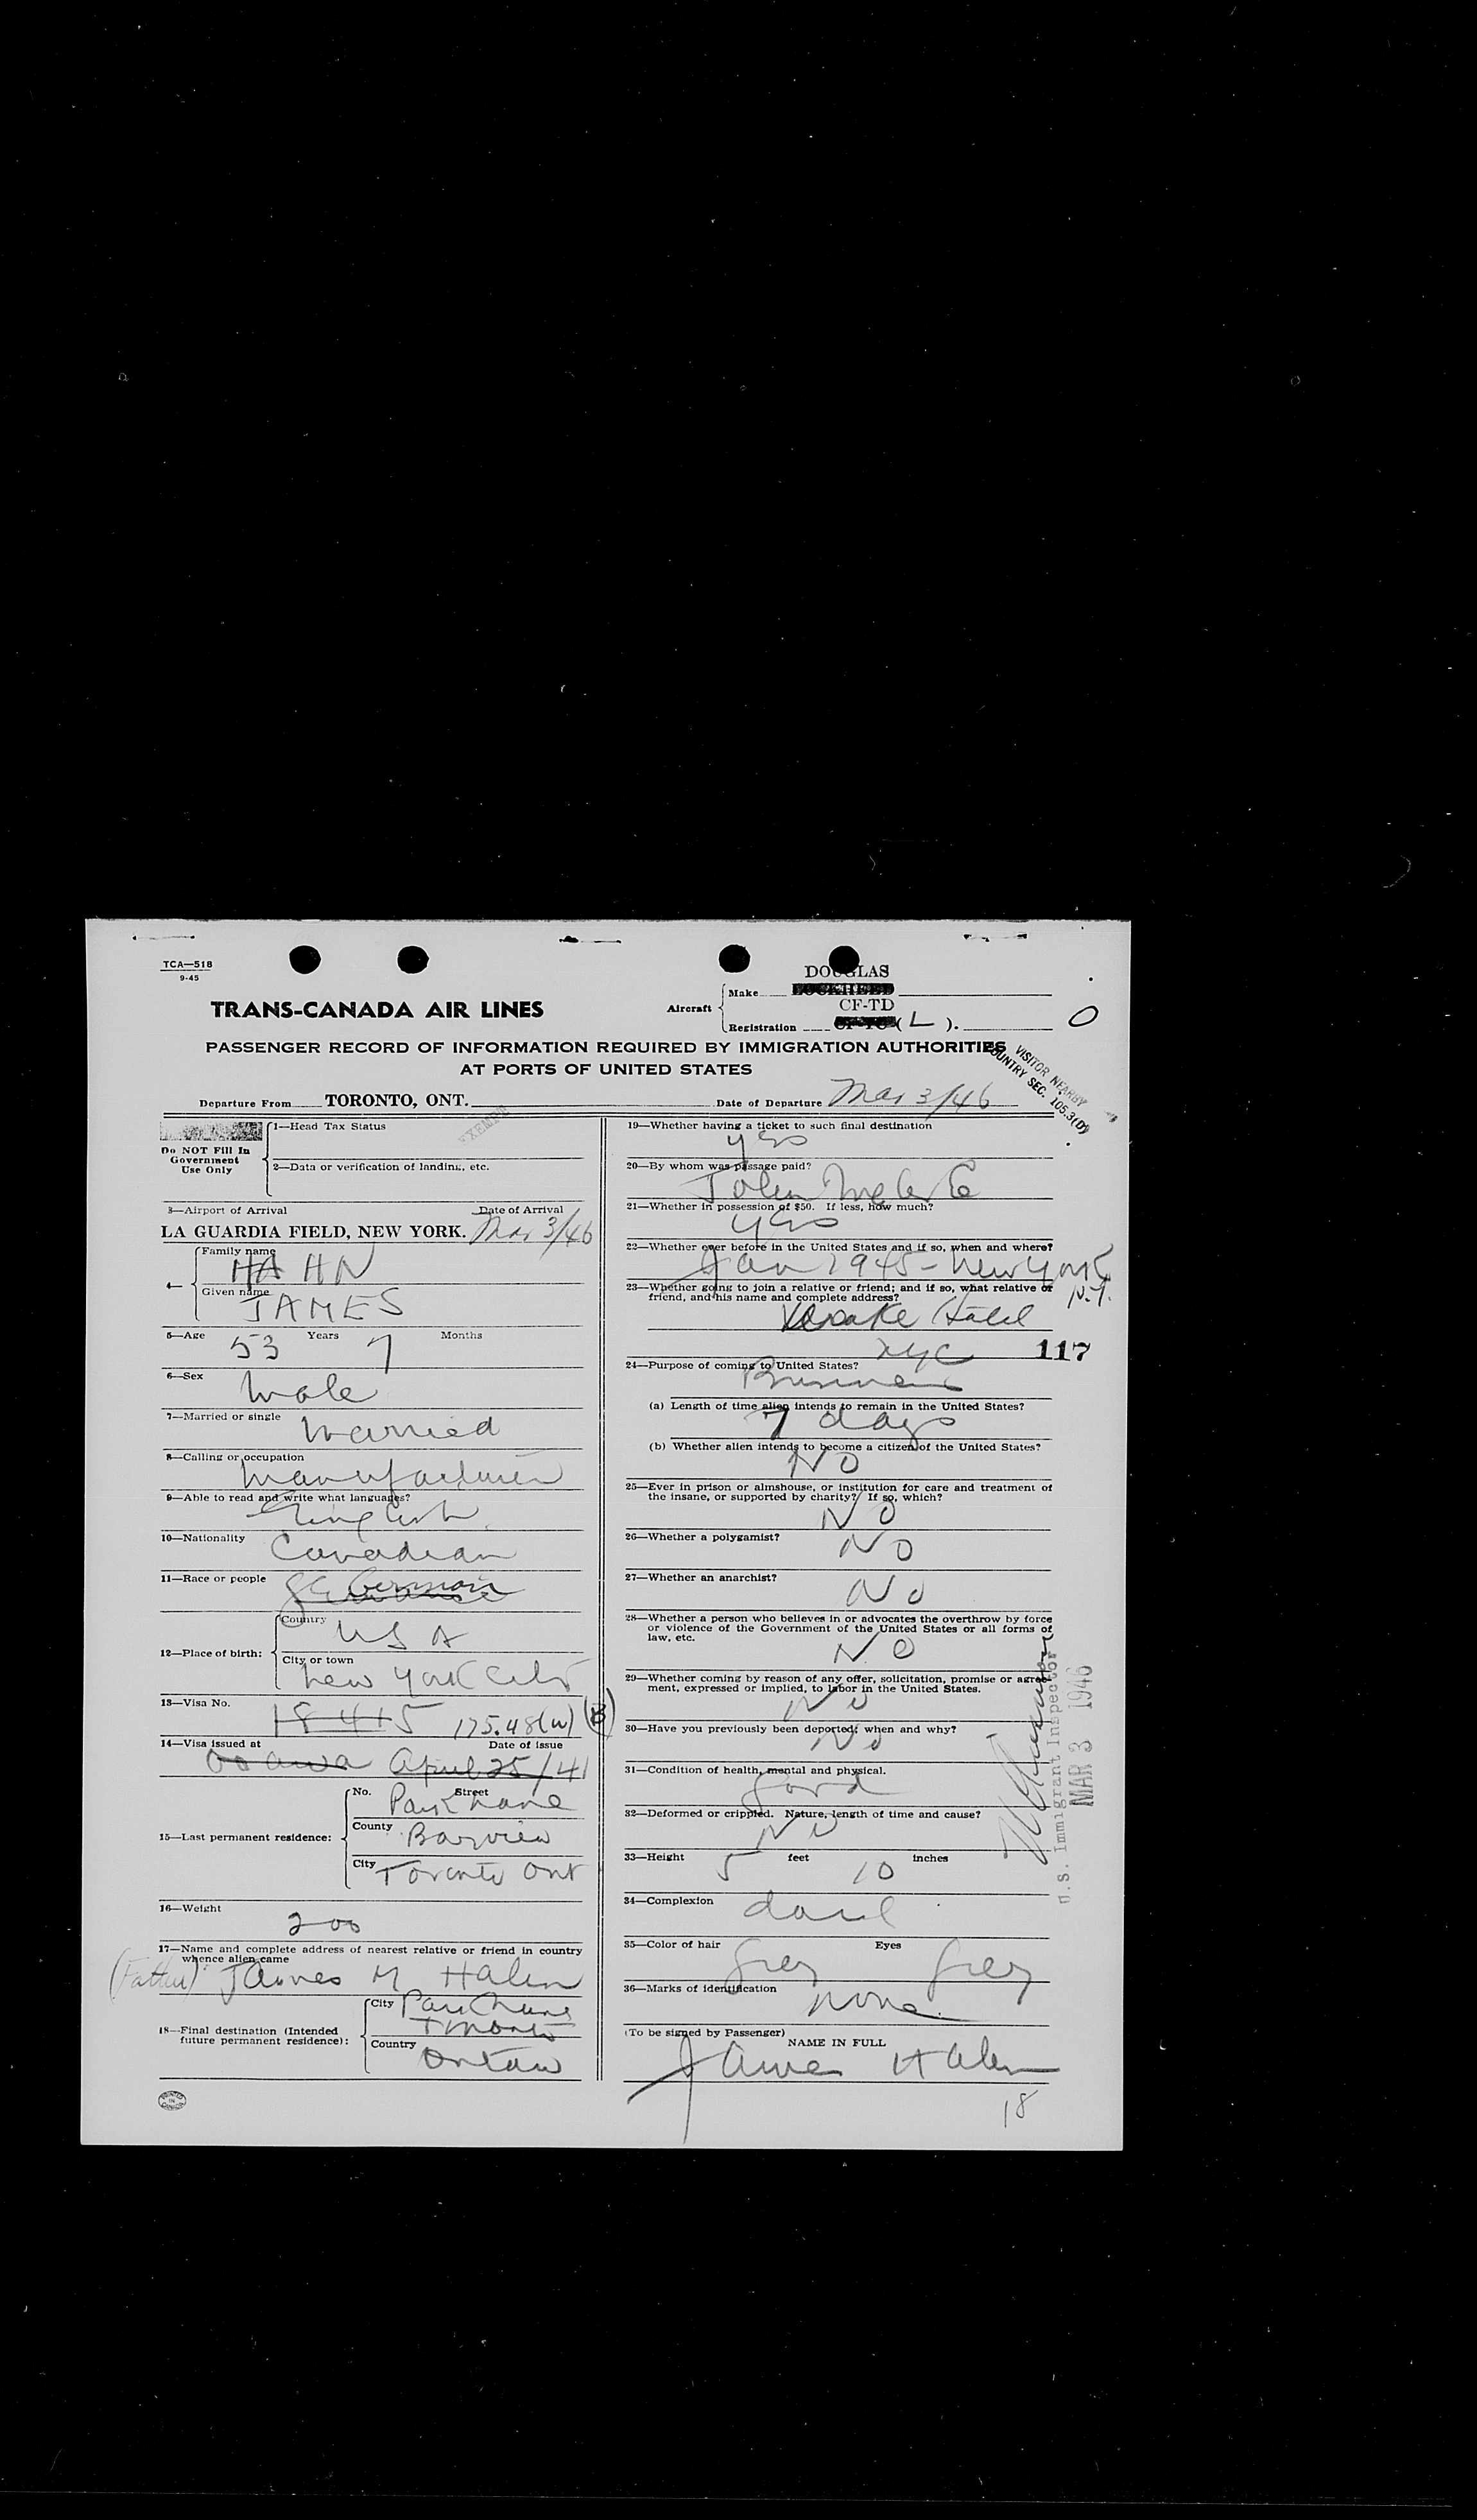 TCA—518
9-45
TRANS-CANADA AIR LINES
Aircraft
Make
DOUGLAS
LOCKHEED
CF-TD
Registration CF-TC (L).
O
PASSENGER RECORD OF INFORMATION REQUIRED BY IMMIGRATION AUTHORITIES
AT PORTS OF UNITED STATES
VISITOR NEARBY
COUNTRY SEC. 105.3(D)
Departure From TORONTO, ONT.
Date of Departure Mar 3/46
Do NOT Fill In
Government
Use Only
1—Head Tax Status
EXEMPT
2—Data or verification of landing, etc.
3—Airport of Arrival Date of Arrival
LA GUARDIA FIELD, NEW YORK. Mar 3/46
4—
Family name
HAHN
Given name
JAMES
5—Age 53 Years 7 Months
6—Sex
Male
7—Married or single
Married
8—Calling or occupation
Manufacturer
9—Able to read and write what languages?
English
10—Nationality
Canadian
11—Race or people
German
12—Place of birth:
Country
USA
City or town
New York City
13—Visa No.
18415 175.48(w) (B)
14—Visa issued at Date of issue
Ottawa April 25/41
15—Last permanent residence:
No. Street
Park Lane
County
Bayview
City
Toronto Ont
16—Weight
200
17—Name and complete address of nearest relative or friend in country
whence alien came
(Father) James M Hahn
18—Final destination (Intended
future permanent residence):
City
Park Lane
Toronto
Country
Ontario
PRINTED IN CANADA
19—Whether having a ticket to such final destination
yes
20—By whom was passage paid?
John
21—Whether in possession of $50. If less, how much?
yes
22—Whether ever before in the United States and if so, when and where?
Jan 1945 - New York
N.Y.
23—Whether going to join a relative or friend; and if so, what relative or
friend, and his name and complete address?
Drake Hotel
NYC
117
24—Purpose of coming to United States?
Business
(a) Length of time alien intends to remain in the United States?
7 days
(b) Whether alien intends to become a citizen of the United States?
NO
25—Ever in prison or almshouse, or institution for care and treatment of
the insane, or supported by charity? If so, which?
NO
26—Whether a polygamist?
NO
27—Whether an anarchist?
No
28—Whether a person who believes in or advocates the overthrow by force
or violence of the Government of the United States or all forms of
law, etc.
NO
29—Whether coming by reason of any offer, solicitation, promise or agree-
ment, expressed or implied, to labor in the United States.
No
30—Have you previously been deported; when and why?
No
31—Condition of health, mental and physical.
Good
32—Deformed or crippled. Nature, length of time and cause?
No
33—Height 5 feet 10 inches
34—Complexion
dark
35—Color of hair Grey Eyes Grey
36—Marks of identification
none.
(To be signed by Passenger)
NAME IN FULL
James Hahn
18
U.S. Immigrant Inspector
MAR 3 1946